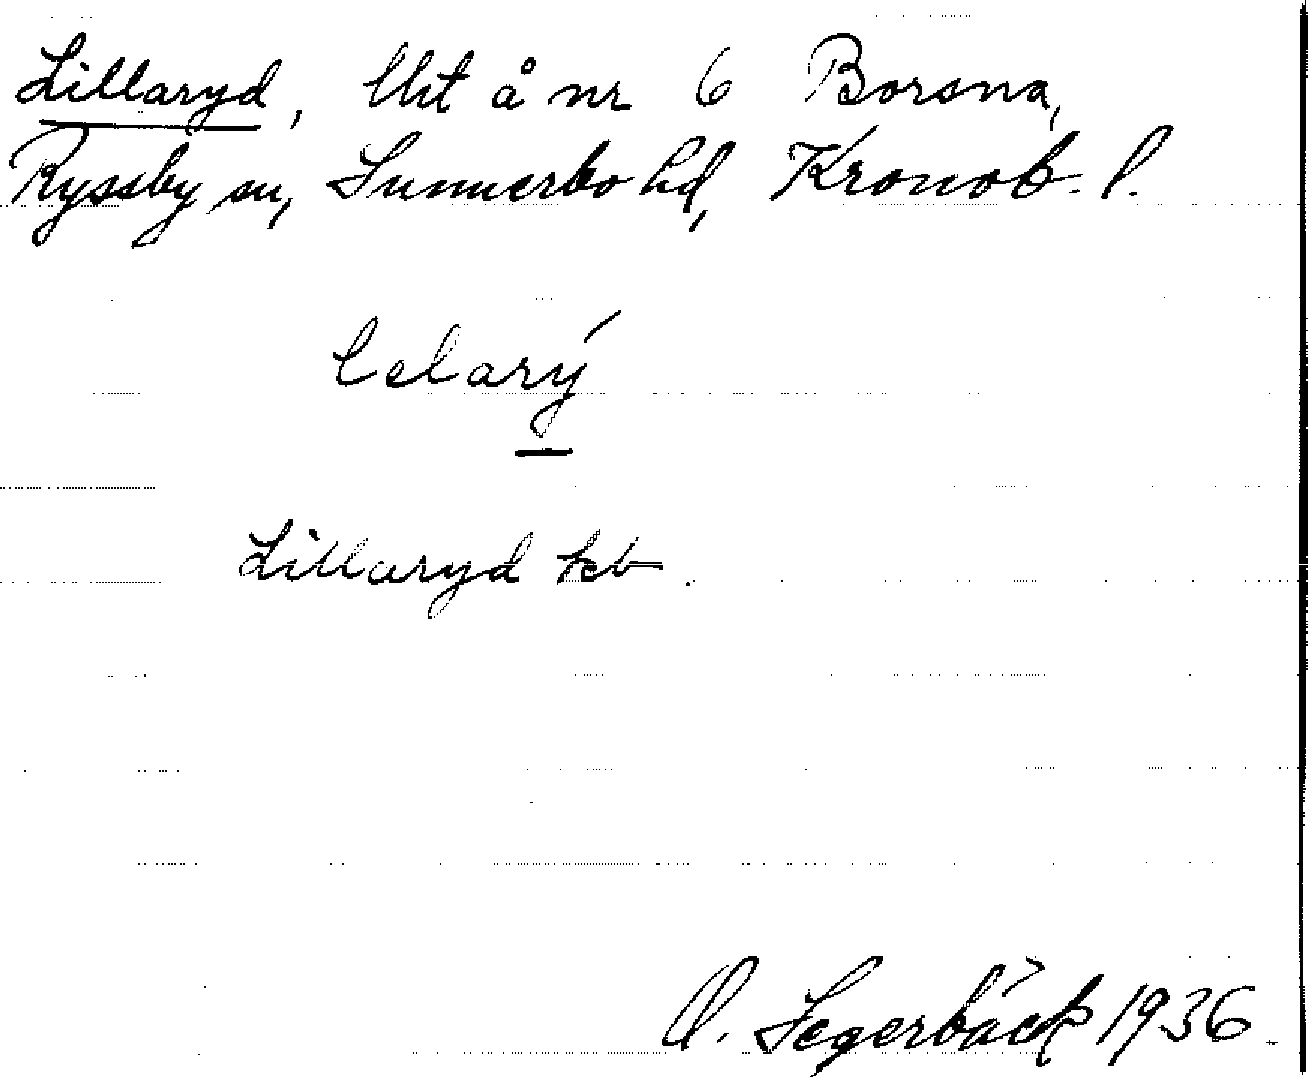 Lillaryd, lht å nr 6 Borsna,
Ryssby sn, Sunnerbo hd, Kronob. l.
lelarý
Lillaryd kb.
O. Segerbäck 1936